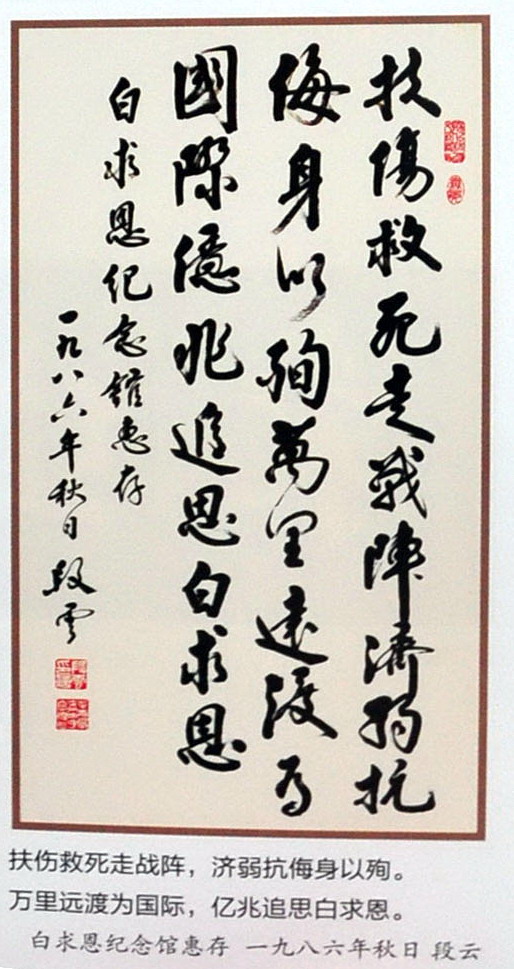 扶傷救死走戰陣濟弱抗
侮身以殉萬里遠渡為
國際億兆追思白求恩
白求恩纪念館惠存
一九八六年秋日 段云
扶伤救死走战阵，济弱抗侮身以殉。
万里远渡为国际，亿兆追思白求恩。
白求恩纪念馆惠存 一九八六年秋日 段云